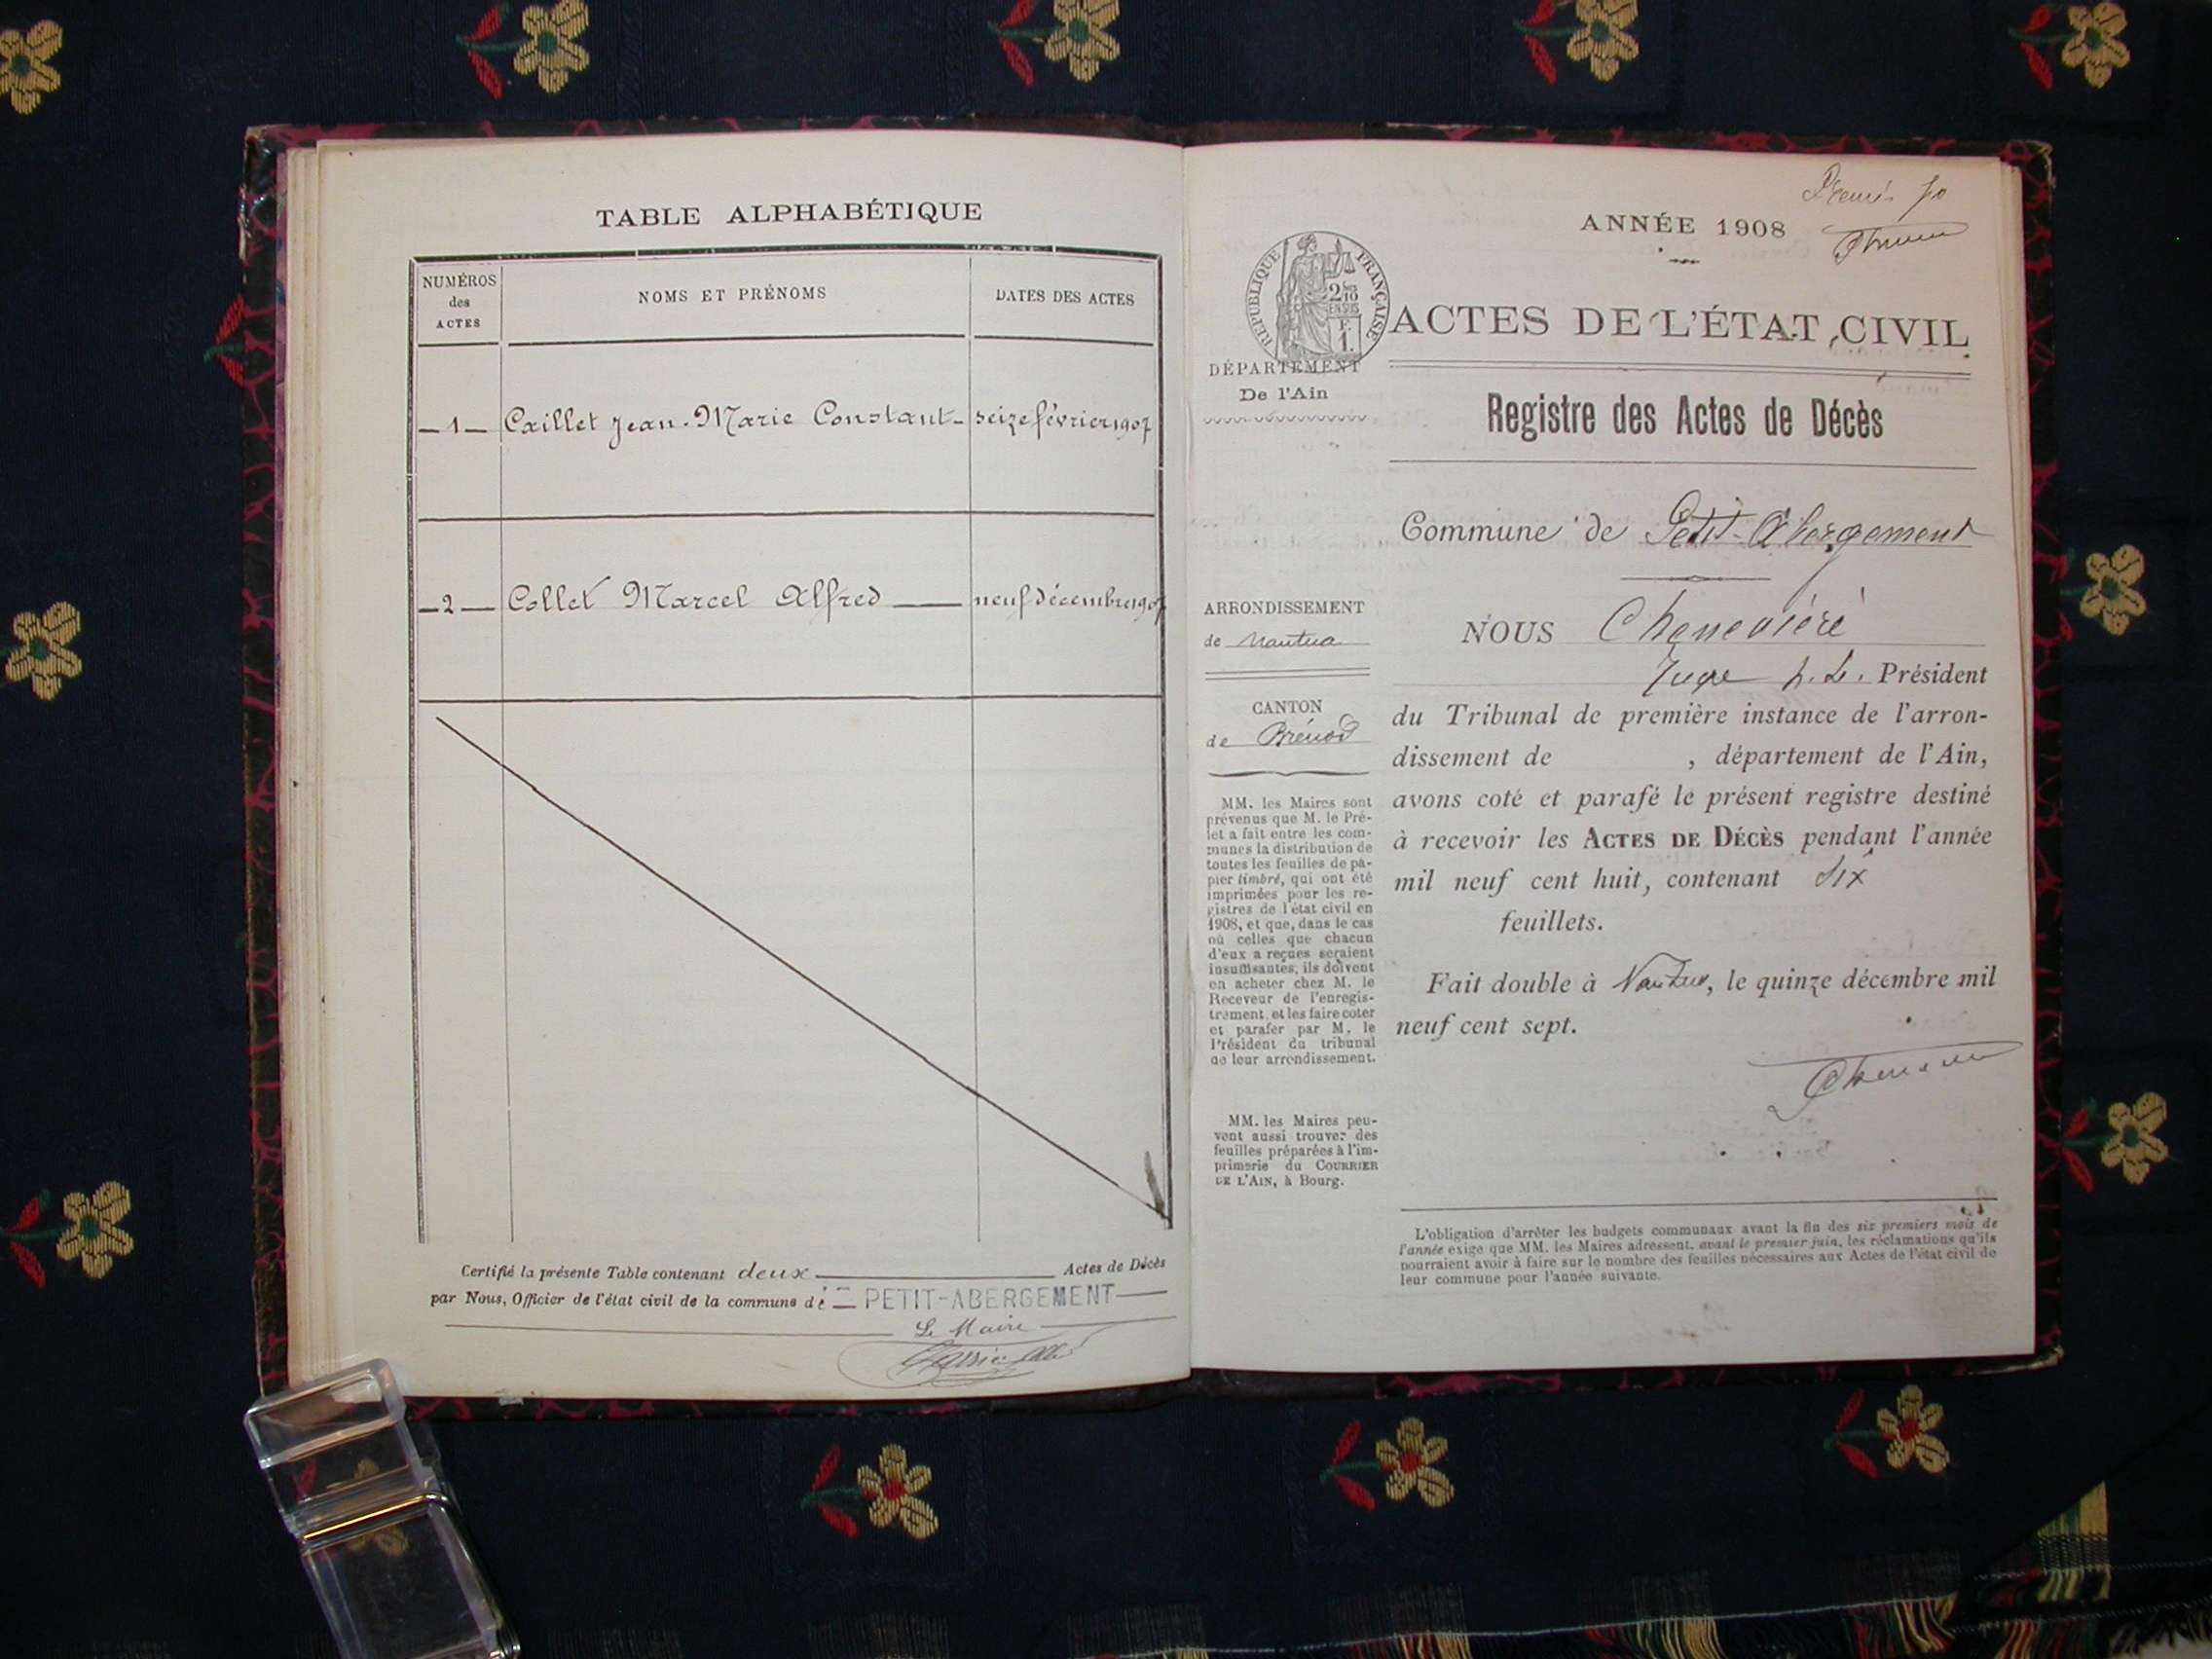 TABLE ALPHABÉTIQUE
NUMÉROS
des
ACTES
NOMS ET PRÉNOMS
DATES DES ACTES
1 Caillet Jean-Marie Constant seize février 1907
2 Collet Marcel Alfred neuf décembre 1907
Certifié la présente Table contenant deux Actes de Décès
par Nous, Officier de l'état civil de la commune de PETIT-ABERGEMENT
Le Maire
ANNÉE 1908
RÉPUBLIQUE FRANÇAISE
2/10
EN SUS
F.
1.
ACTES DE L'ÉTAT CIVIL
DÉPARTEMENT
De l'Ain
Registre des Actes de Décès
Commune de Petit-Abergement
ARRONDISSEMENT
de Nantua
CANTON
de Brénod
MM. les Maires sont
prévenus que M. le Pré-
fet a fait entre les com-
munes la distribution de
toutes les feuilles de pa-
pier timbré, qui ont été
imprimées pour les re-
gistres de l'état civil en
1908, et que, dans le cas
où celles que chacun
d'eux a reçues seraient
insuffisantes, ils doivent
en acheter chez M. le
Receveur de l'enregis-
trement, et les faire coter
et parafer par M. le
Président du tribunal
de leur arrondissement.
MM. les Maires peu-
vent aussi trouver des
feuilles préparées à l'im-
primerie du COURRIER
DE L'AIN, à Bourg.
NOUS Chenevière
Juge Président
du Tribunal de première instance de l'arron-
dissement de , département de l'Ain,
avons coté et parafé le présent registre destiné
à recevoir les ACTES DE DÉCÈS pendant l'année
mil neuf cent huit, contenant six
feuillets.
Fait double à Nantua, le quinze décembre mil
neuf cent sept.
L'obligation d'arrêter les budgets communaux avant la fin des six premiers mois de
l'année exige que MM. les Maires adressent, avant le premier juin, les réclamations qu'ils
pourraient avoir à faire sur le nombre des feuilles nécessaires aux Actes de l'état civil de
leur commune pour l'année suivante.